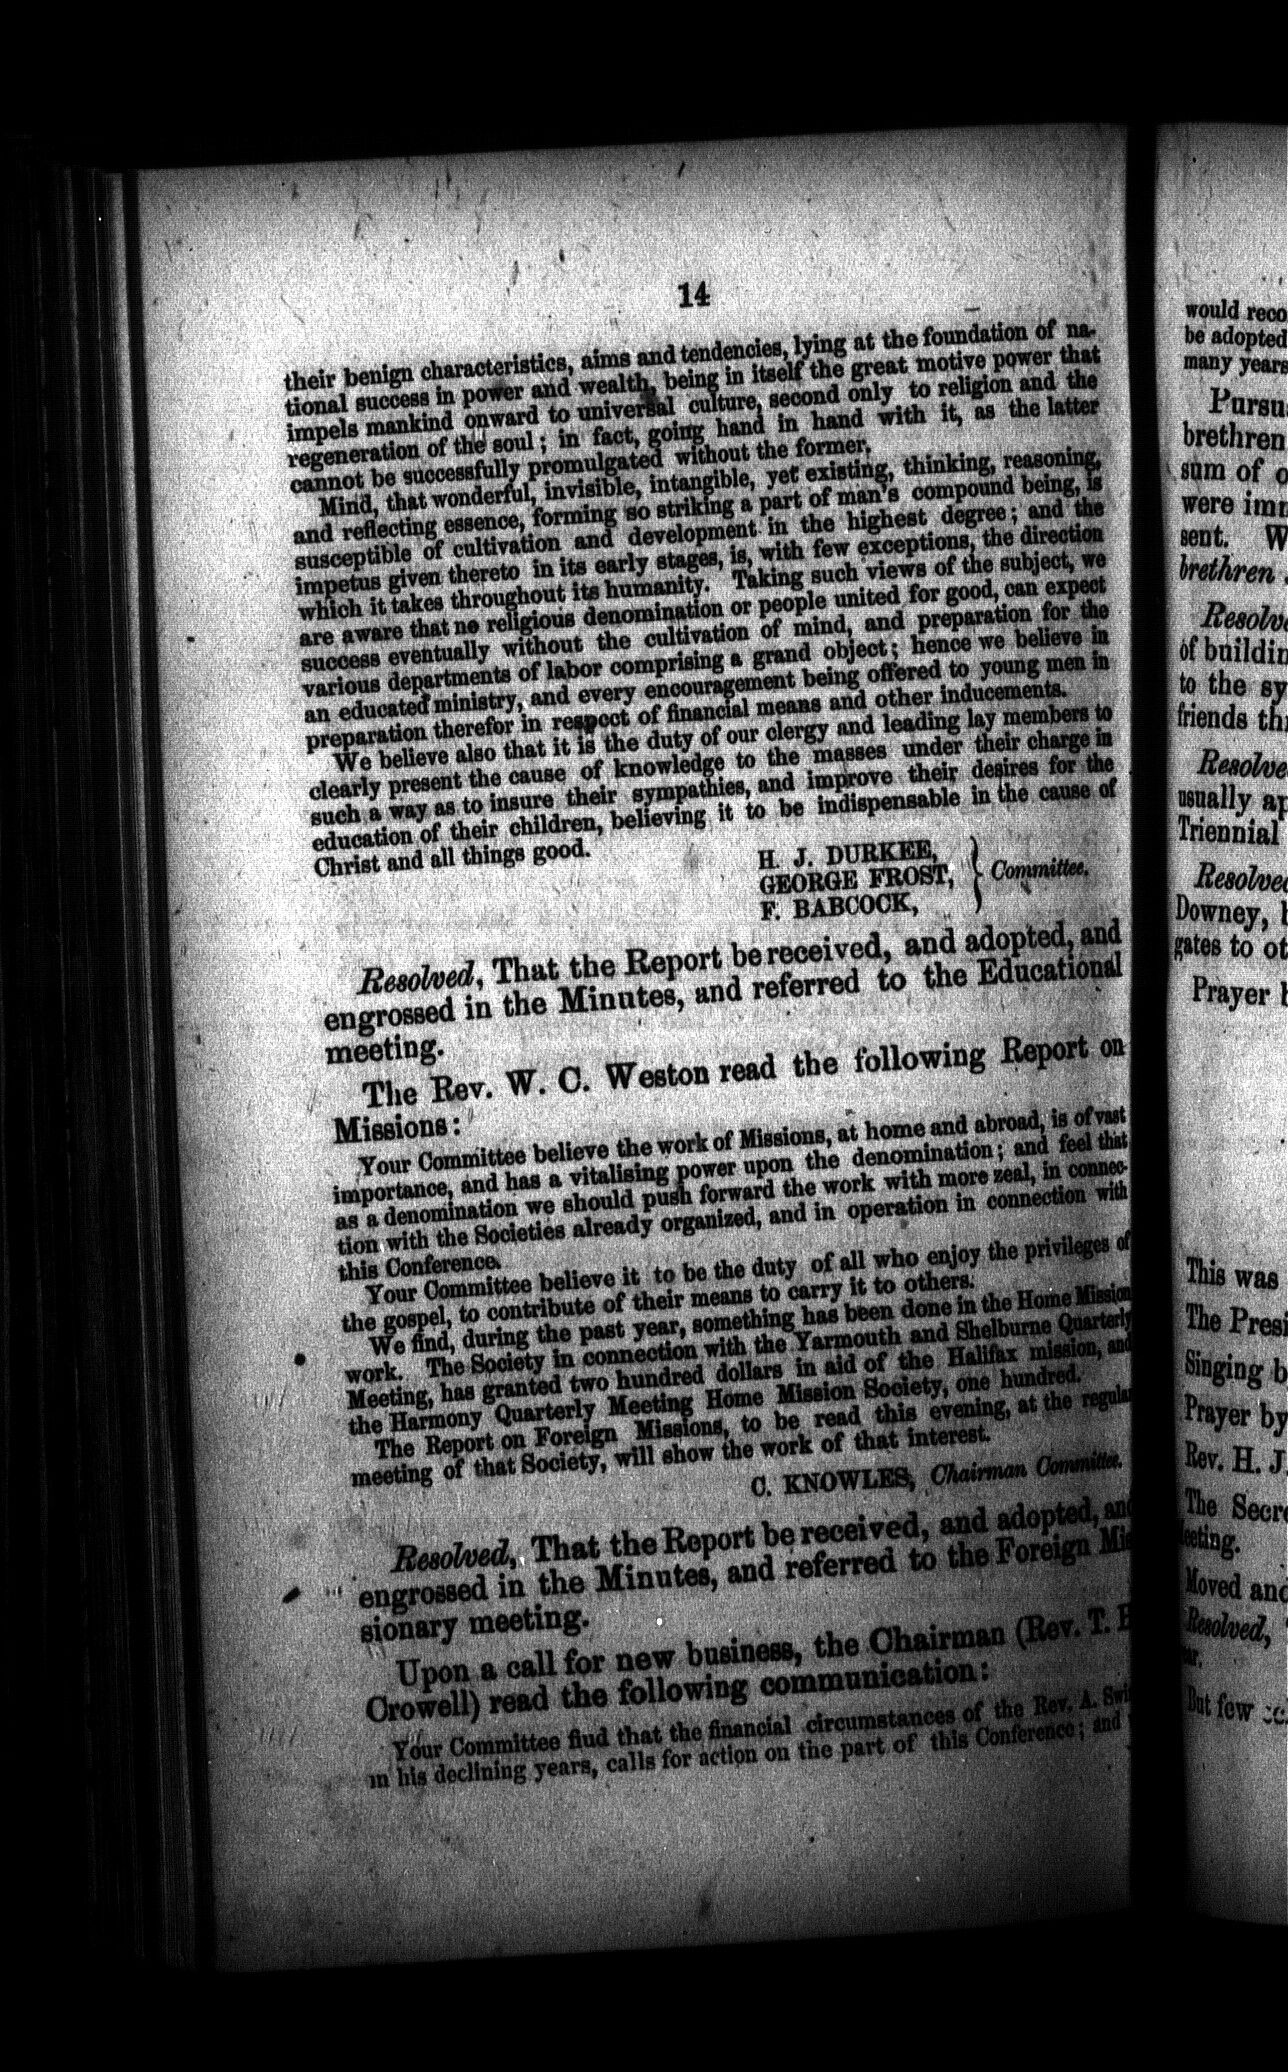 14
their benign characteristics, aims and tendencies, lying at the foundation of na-
tional success in power and wealth, being in itself the great motive power that
impels mankind onward to universal culture, second only to religion and the
regeneration of the soul; in fact, going hand in hand with it, as the latter
cannot be successfully promulgated without the former.
Mind, that wonderful, invisible, intangible, yet existing, thinking, reasoning,
and reflecting essence, forming so striking a part of man's compound being, is
susceptible of cultivation and development in the highest degree; and the
impetus given thereto in its early stages, is, with few exceptions, the direction
which it takes throughout its humanity. Taking such views of the subject, we
are aware that no religious denomination or people united for good, can expect
success eventually without the cultivation of mind, and preparation for the
various departments of labor comprising a grand object; hence we believe in
an educated ministry, and every encouragement being offered to young men in
preparation therefor in respect of financial means and other inducements.
We believe also that it is the duty of our clergy and leading lay members to
clearly present the cause of knowledge to the masses under their charge in
such a way as to insure their sympathies, and improve their desires for the
education of their children, believing it to be indispensable in the cause of
Christ and all things good.
H. J. DURKEE,
GEORGE FROST, } Committee.
F. BABCOCK,
Resolved, That the Report be received, and adopted, and
engrossed in the Minutes, and referred to the Educational
meeting.
The Rev. W. C. Weston read the following Report on
Missions:
Your Committee believe the work of Missions, at home and abroad, is of vast
importance, and has a vitalising power upon the denomination; and feel that
as a denomination we should push forward the work with more zeal, in connec-
tion with the Societies already organized, and in operation in connection with
this Conference.
Your Committee believe it to be the duty of all who enjoy the privileges of
the gospel, to contribute of their means to carry it to others.
We find, during the past year, something has been done in the Home Mission
work. The Society in connection with the Yarmouth and Shelburne Quarterly
Meeting, has granted two hundred dollars in aid of the Halifax mission, and
the Harmony Quarterly Meeting Home Mission Society, one hundred.
The Report on Foreign Missions, to be read this evening, at the regular
meeting of that Society, will show the work of that interest.
C. KNOWLES, Chairman Committee.
Resolved, That the Report be received, and adopted, and
engrossed in the Minutes, and referred to the Foreign Mis
sionary meeting.
Upon a call for new business, the Chairman (Rev. T. H
Crowell) read the following communication:
Your Committee fiud that the financial circumstances of the Rev. A. Swi
in his declining years, calls for action on the part of this Conference; and
would reco
be adopted
many years
Pursu
brethren
sum of o
were imm
sent. W
brethren
Resolve
of buildin
to the sy
friends th
Resolve
usually ap
Triennial
Resolved
Downey,
gates to ot
Prayer
This was
The Presi
Singing b
Prayer by
Rev. H. J.
The Secre
eeting.
Moved and
Resolved,
But few